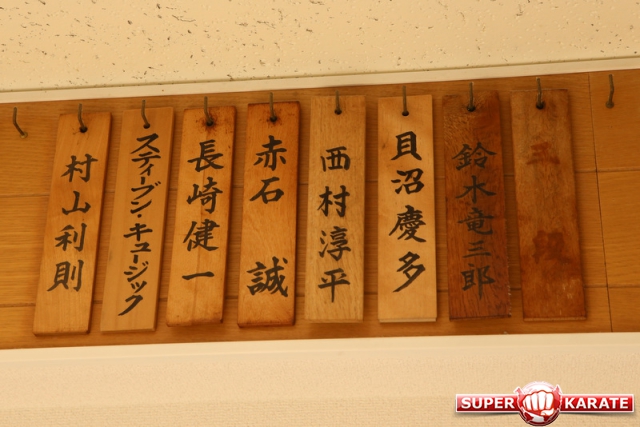 鈴木竜三郎
貝沼慶多
西村淳平
赤石 誠
長崎健一
スティーブン・キュージック
村山利則
SUPER KARATE